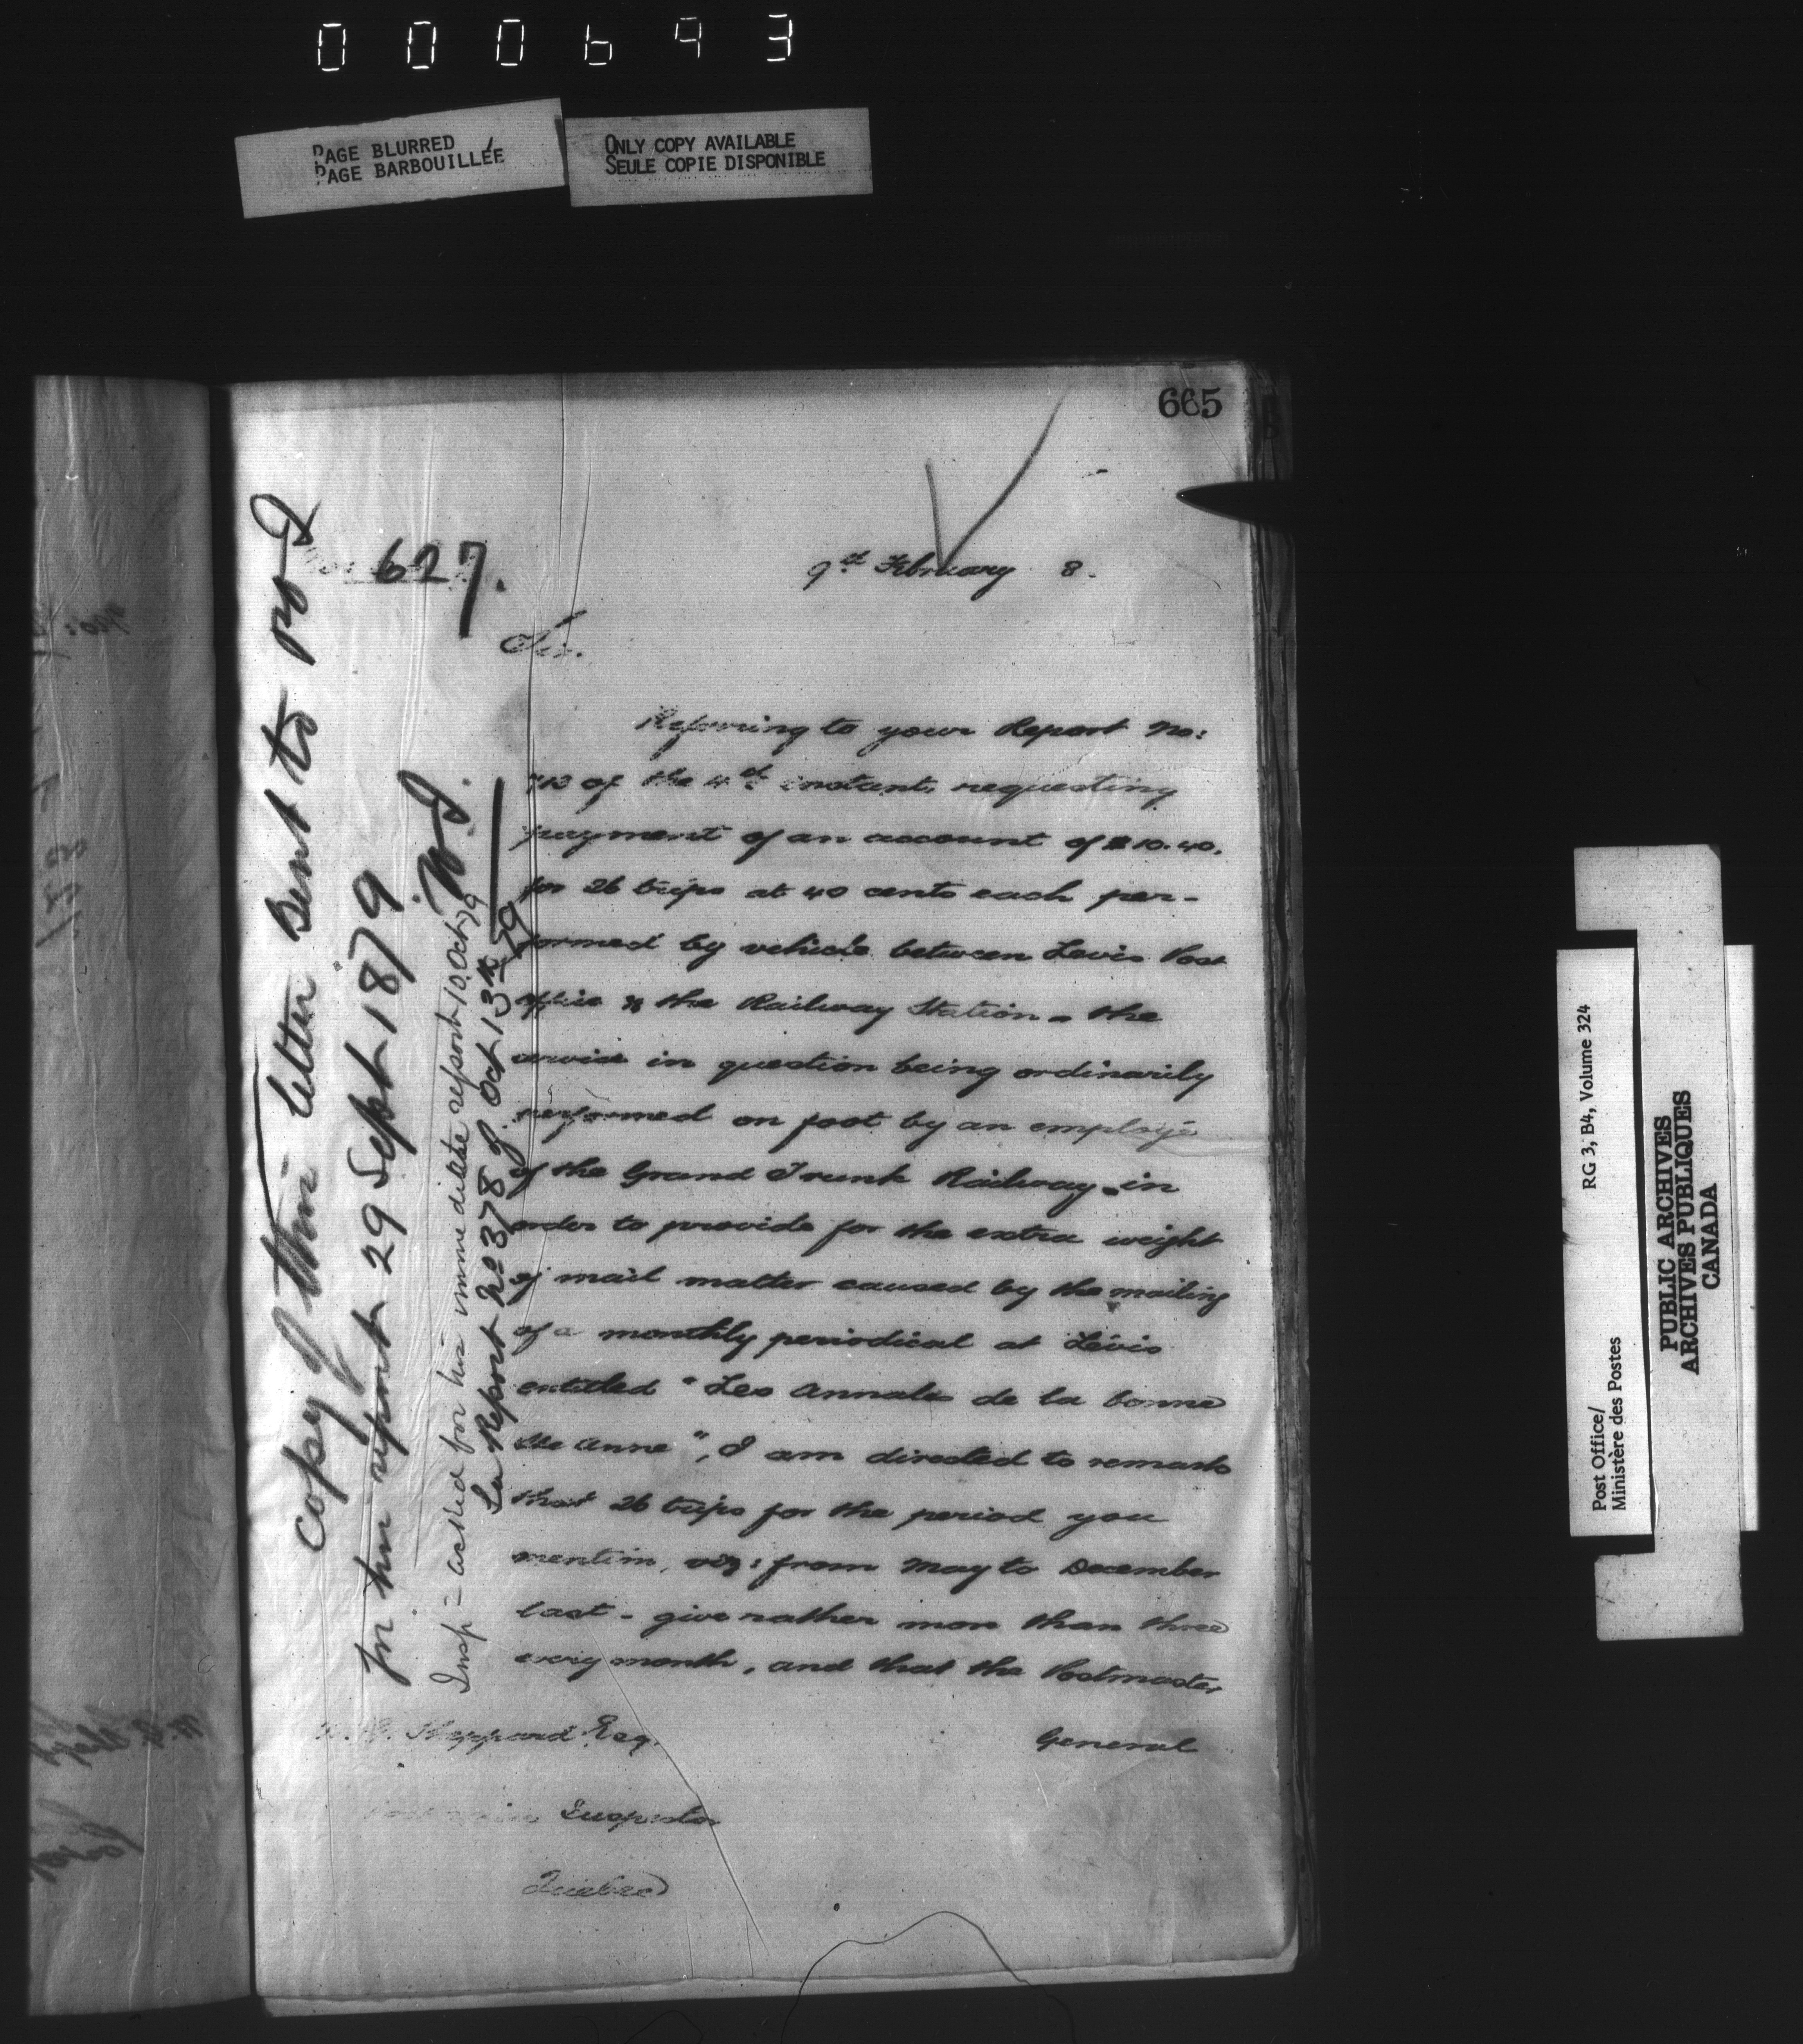 000693
PAGE BLURRED
PAGE BARBOUILLÉE
ONLY COPY AVAILABLE
SEULE COPIE DISPONIBLE
665
627.
9th February 8.
Sir.
Referring to your Report No:
of the 4th instant, requesting
payment of an account of $10.40.
for 26 trips at 40 cents each per-
formed by vehicle between Levis Post
Office & the Railway Station - the
service in question being ordinarily
performed on foot by an employé
of the Grand Trunk Railway - in
order to provide for the extra weight
of mail matter caused by the mailing
of a monthly periodical at Lévis
entitled "Les Annales de la bonne
Ste Anne", I am directed to remark
that 26 trips for the period you
mention, viz: from May to December
last - give rather more than three
every month, and that the Postmaster
General
Sheppard Esq.
Inspector
Quebec
Copy of this letter sent to P O I
for his report 29 Sept 1879
W.J.
Insp - asked for his immediate report 10 Oct 79
See Report No 378 J. Oct 13th 79
Post Office/
Ministère des Postes
RG 3, B4, Volume 324
PUBLIC ARCHIVES
ARCHIVES PUBLIQUES
CANADA